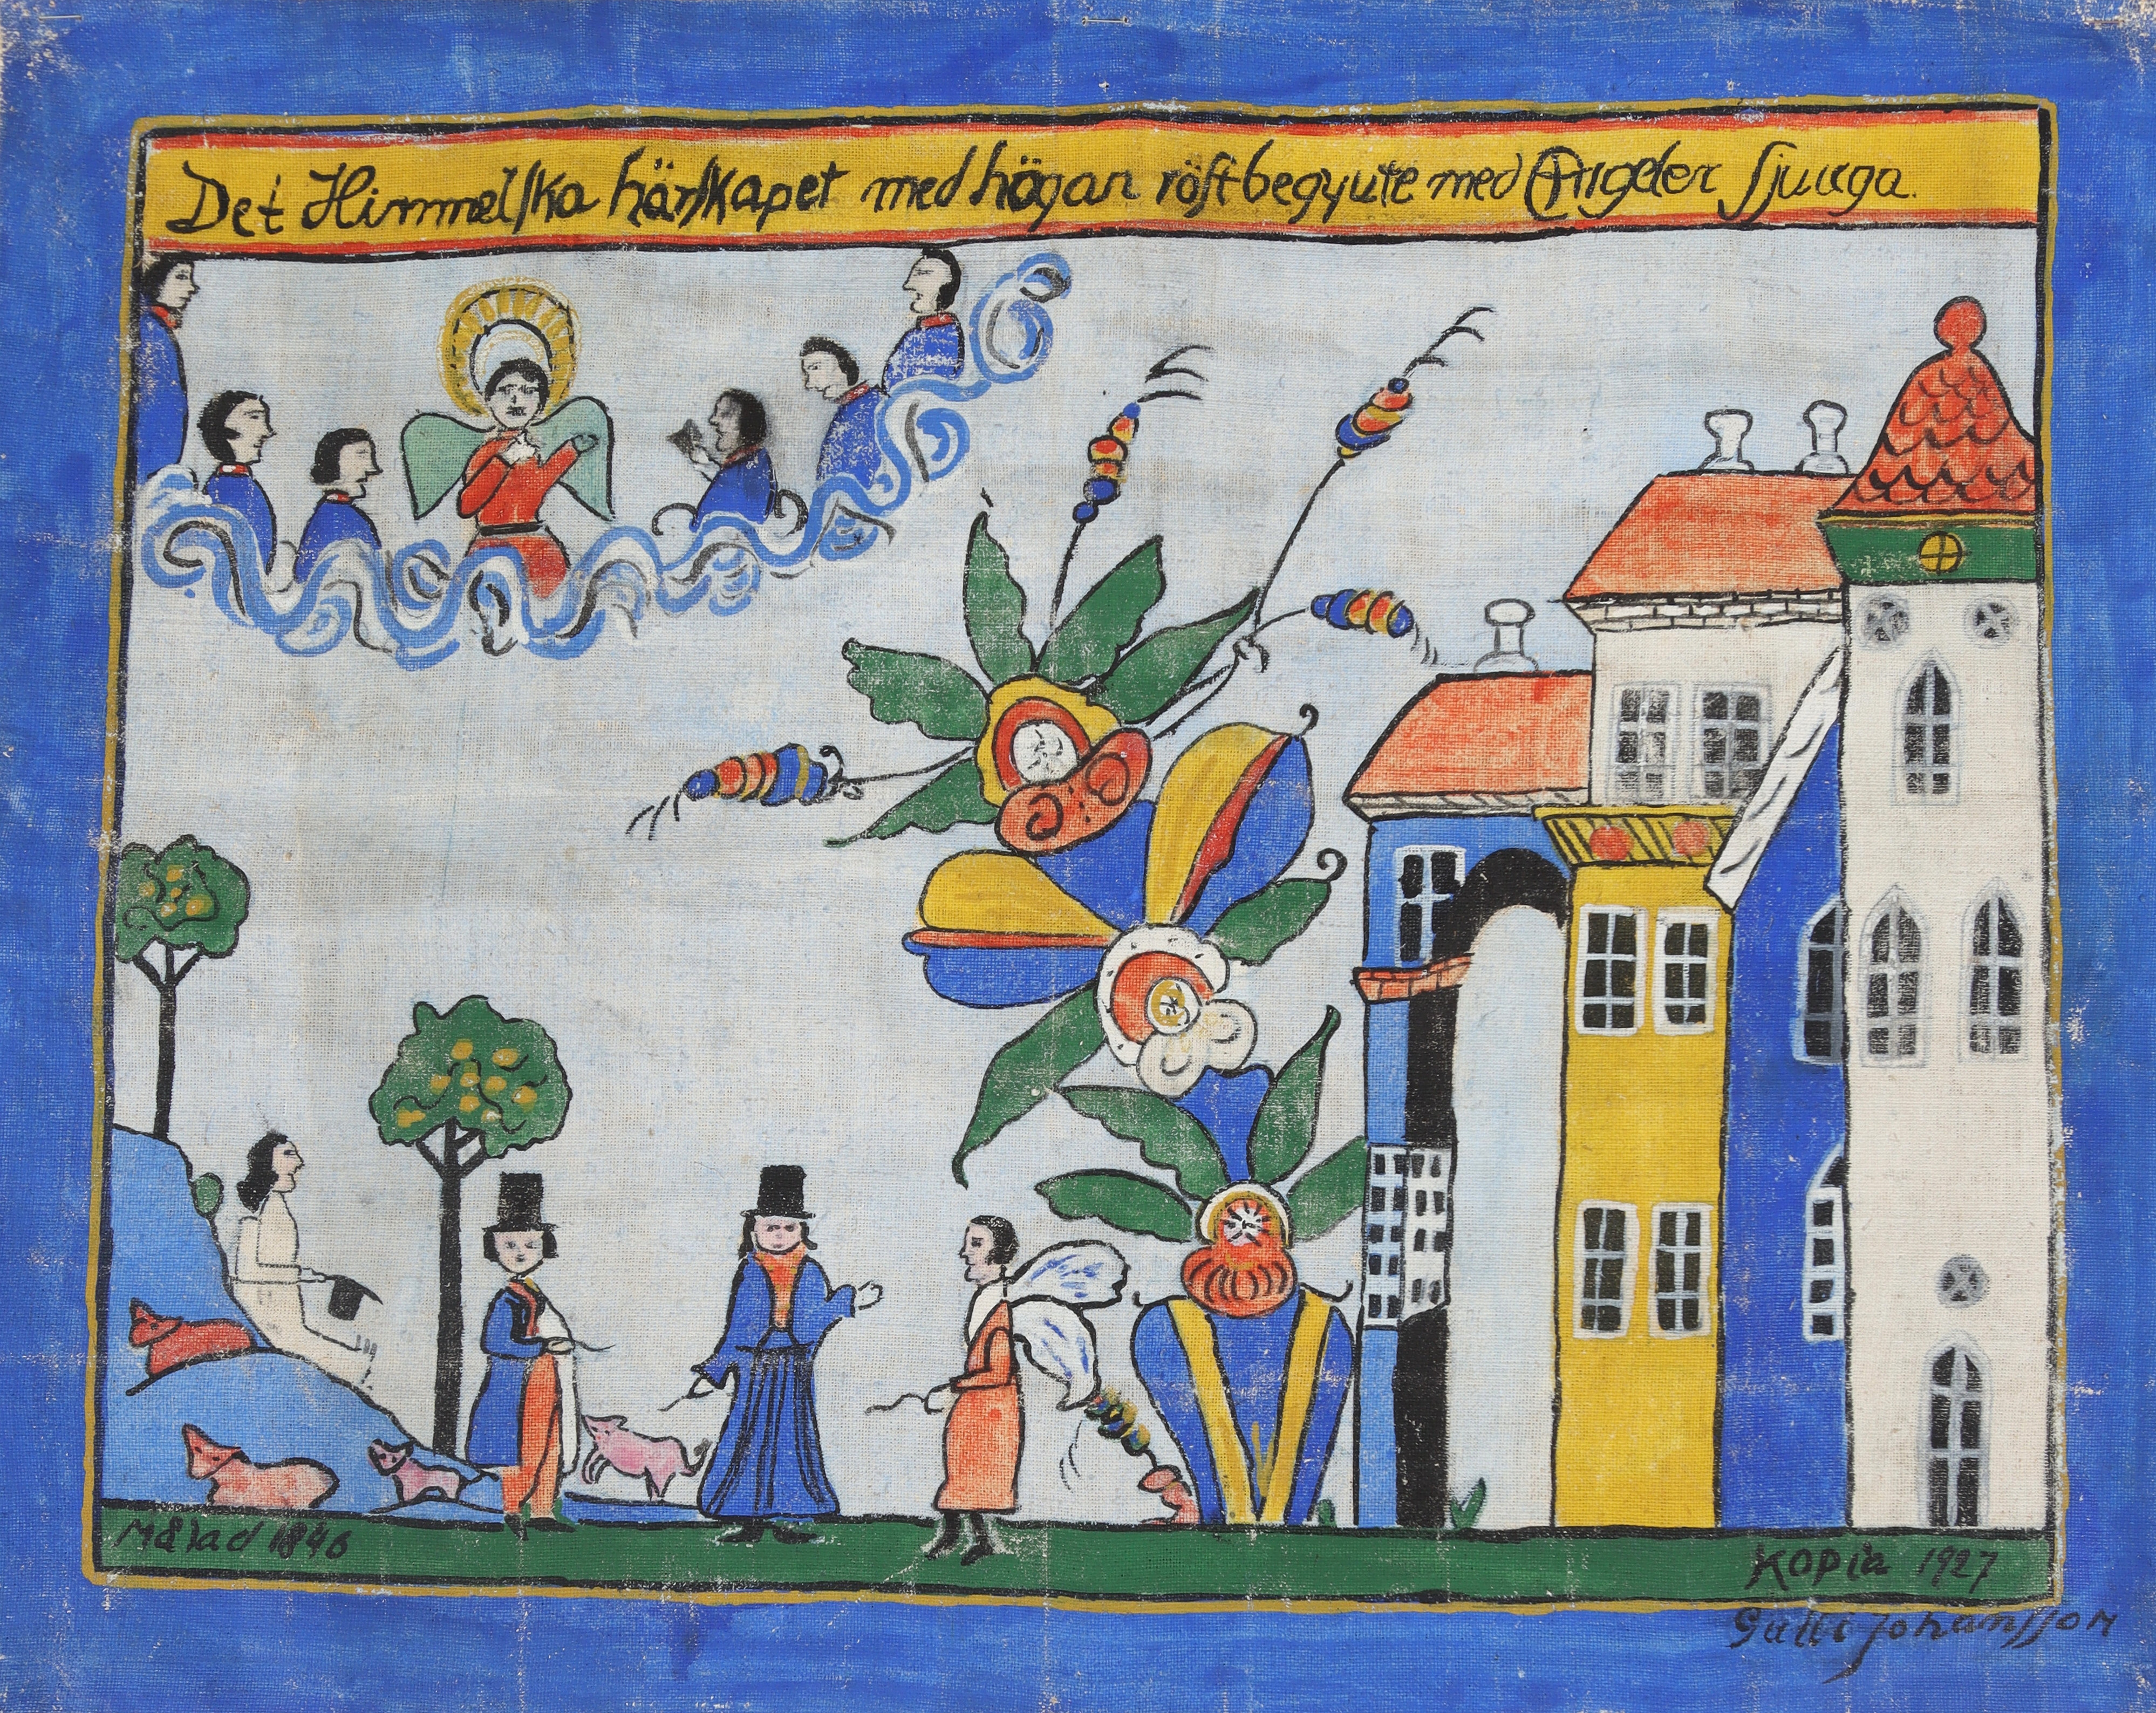 Det Himmelska härskapet med högan röst begynte med Angeler sjunga.
Målad 1846
Kopia 1927
Gulli Johansson